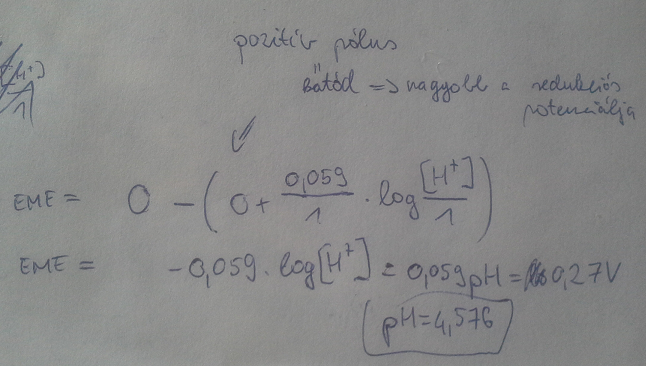 pozitív pólus
katód => nagyobb a redukciós
potenciálja
[H⁺]
1
EME = 0 - (0 + 0,059/1 · log [H⁺]/1)
EME = -0,059 · log[H⁺] = 0,059 pH = 0,27V
pH = 4,576